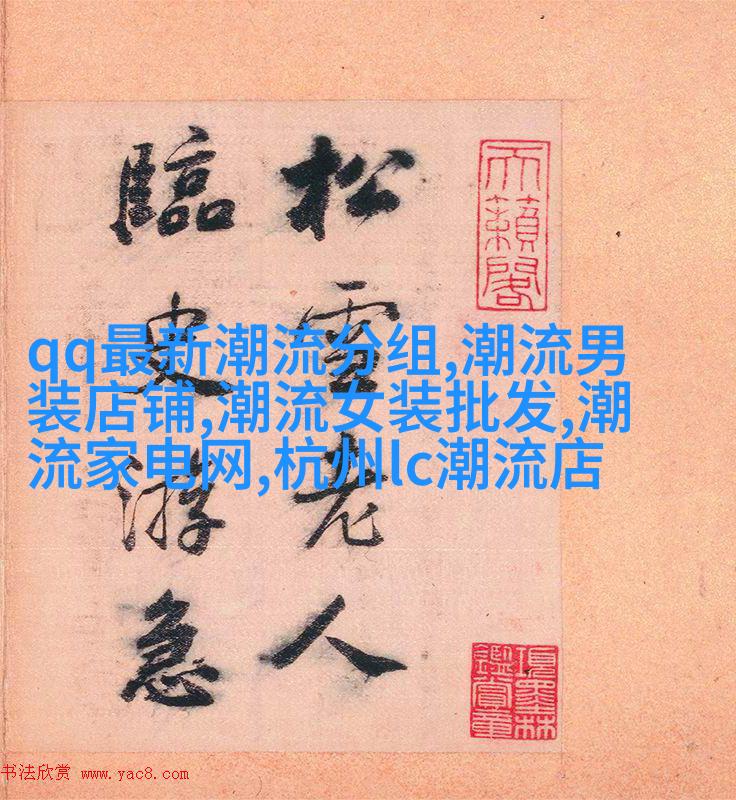 松雪老人
臨史游急
天籟閣
項墨林
鑑賞章
qq最新潮流分组,潮流男
装店铺,潮流女装批发,潮
流家电网,杭州lc潮流店
书法欣赏 www.yac8.com